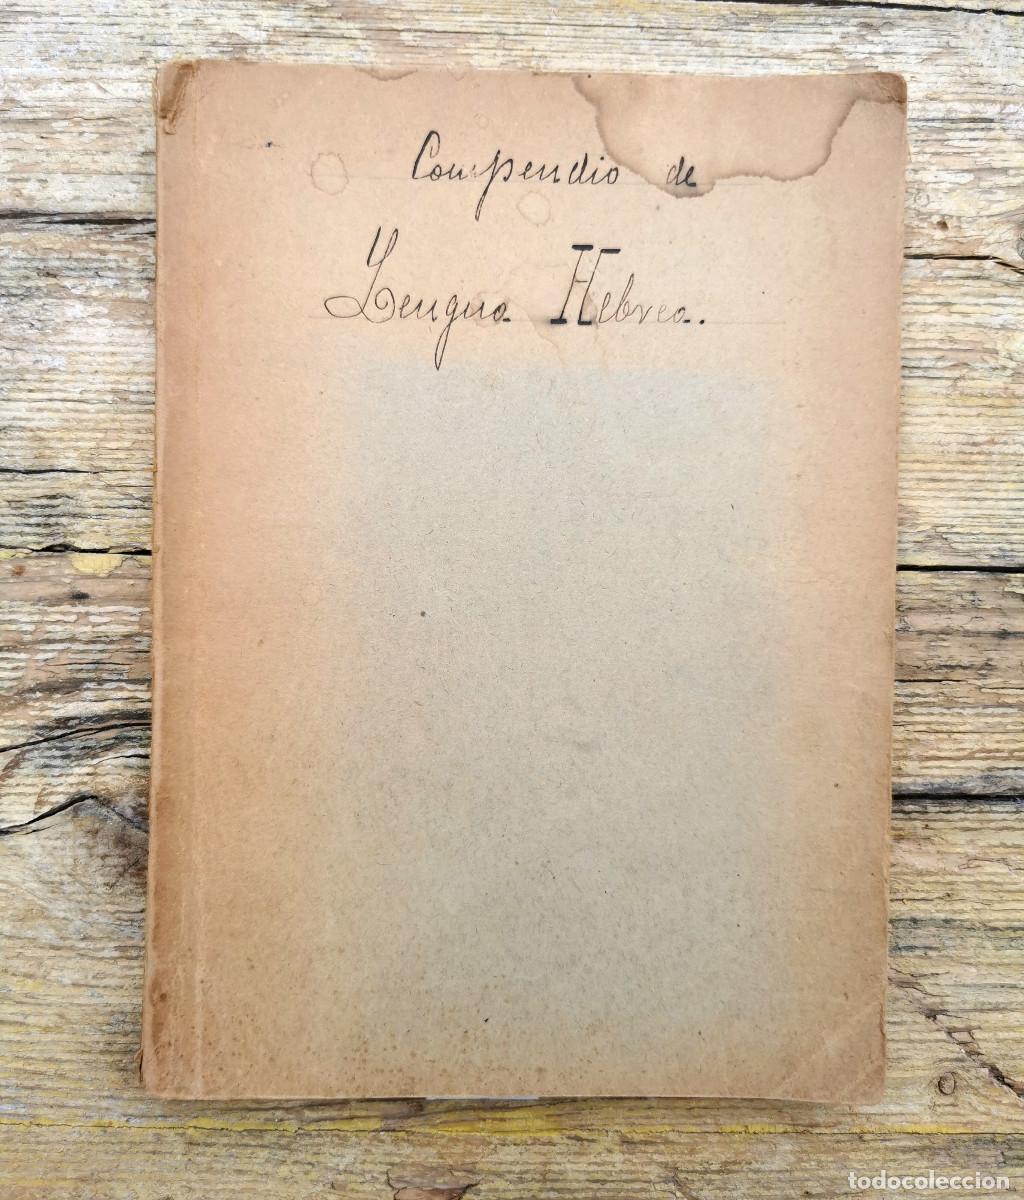 Compendio de
Lengua Hebrea.
todocoleccion